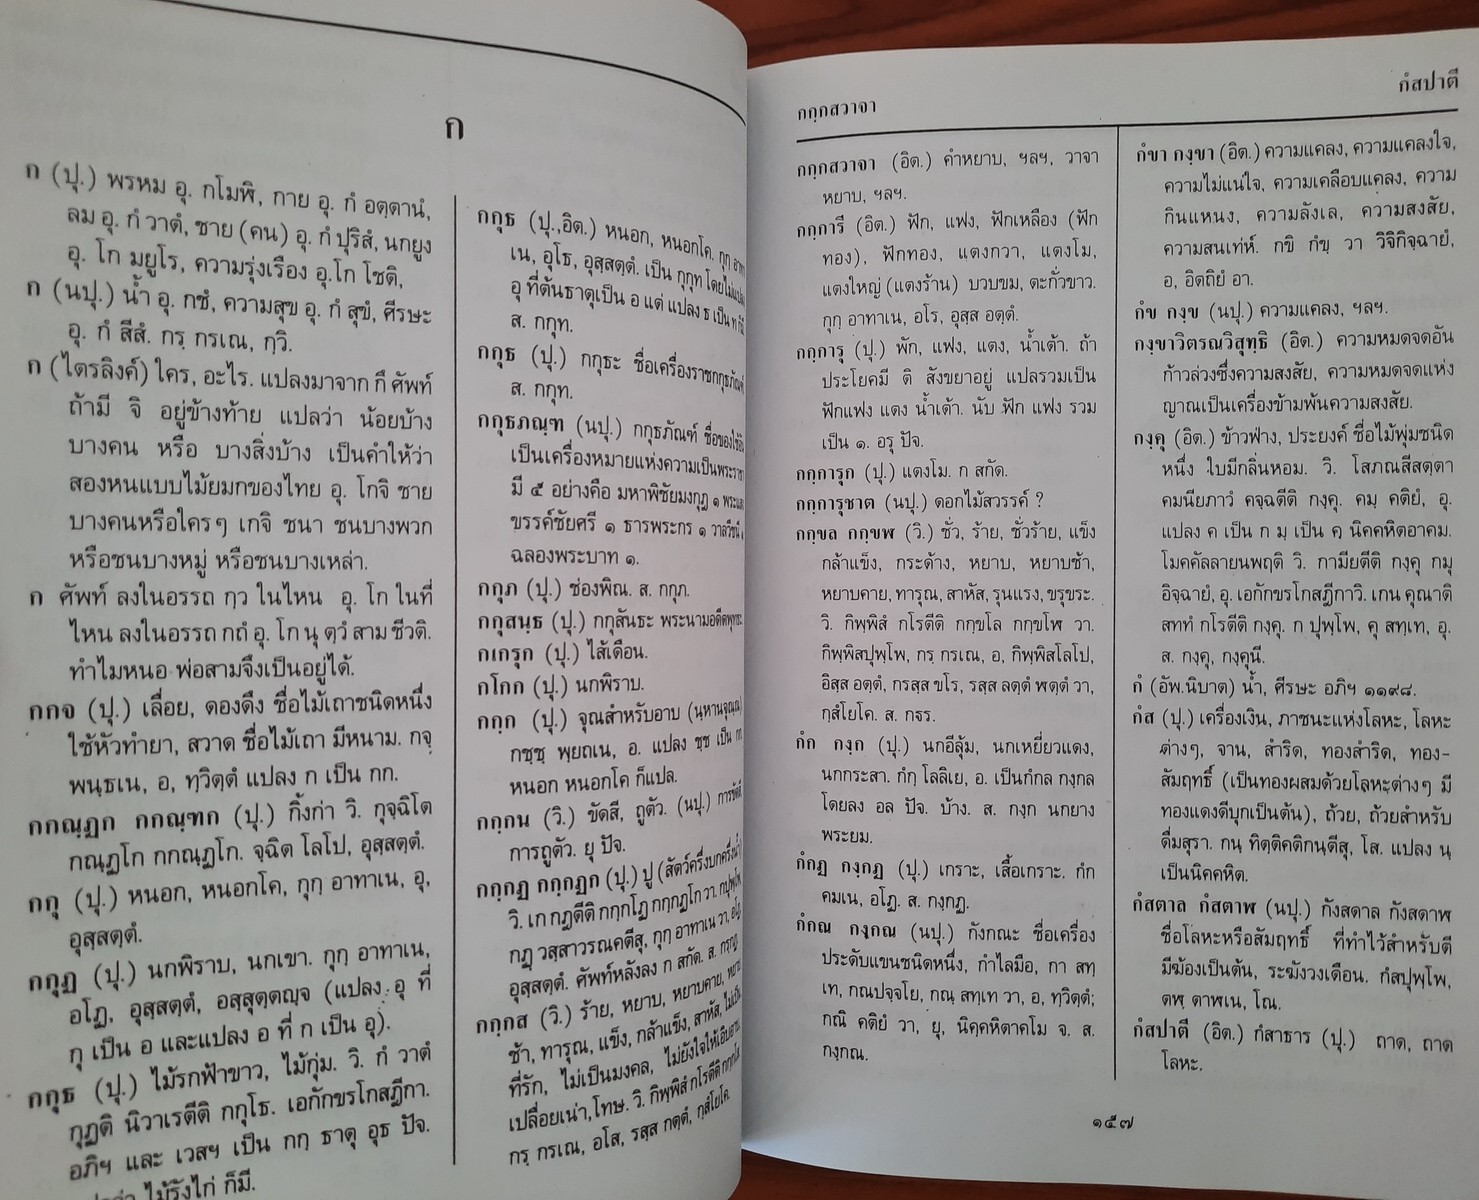 ก
ก (ปุ.) พรหม อุ. กโมพิ, กาย อุ. กํ อตฺตานํ,
ลม อุ. กํ วาตํ, ชาย (คน) อุ. กํ ปุริสํ, นกยูง
อุ. โก มยูโร, ความรุ่งเรือง อุ.โก โชติ,
ก (นปุ.) น้ำ อุ. กชํ, ความสุข อุ. กํ สุขํ, ศีรษะ
อุ. กํ สีสํ. กรฺ กรเณ, กฺวิ.
ก (ไตรลิงค์) ใคร, อะไร. แปลงมาจาก กึ ศัพท์
ถ้ามี จิ อยู่ข้างท้าย แปลว่า น้อยบ้าง
บางคน หรือ บางสิ่งบ้าง เป็นคำให้ว่า
สองหนแบบไม้ยมกของไทย อุ. โกจิ ชาย
บางคนหรือใครๆ เกจิ ชนา ชนบางพวก
หรือชนบางหมู่ หรือชนบางเหล่า.
ก ศัพท์ ลงในอรรถ กฺว ในไหน อุ. โก ในที่
ไหน ลงในอรรถ กถํ อุ. โก นุ ตฺวํ สาม ชีวติ.
ทำไมหนอ พ่อสามจึงเป็นอยู่ได้.
กกจ (ปุ.) เลื่อย, ดองดึง ชื่อไม้เถาชนิดหนึ่ง
ใช้หัวทำยา, สวาด ชื่อไม้เถา มีหนาม. กจฺ
พนฺธเน, อ, ทฺวิตฺตํ แปลง ก เป็น กก.
กกณฺฏก กกณฺฑก (ปุ.) กิ้งก่า วิ. กุจฺฉิโต
กณฺฏโก กกณฺฏโก. จฺฉิต โลโป, อุสฺสตฺตํ.
กกุ (ปุ.) หนอก, หนอกโค, กุกฺ อาทาเน, อุ,
อุสฺสตฺตํ.
กกุฏ (ปุ.) นกพิราบ, นกเขา. กุกฺ อาทาเน,
อโฏ, อุสฺสตฺตํ, อสฺสุตฺตญฺจ (แปลง อุ ที่
กุ เป็น อ และแปลง อ ที่ ก เป็น อุ).
กกุธ (ปุ.) ไม้รกฟ้าขาว, ไม้กุ่ม. วิ. กํ วาตํ
กุฏติ นิวาเรตีติ กกุโธ. เอกักขรโกสฎีกา.
อภิฯ และ เวสฯ เป็น กกฺ ธาตุ อุธ ปัจ.
ไม้รังไก่ ก็มี.
กกุธ (ปุ.,อิต.) หนอก, หนอกโค. กุกฺ อาทา
เน, อุโธ, อุสฺสตฺตํ. เป็น กุกุท โดยไม่แปลง
อุ ที่ต้นธาตุเป็น อ แต่ แปลง ธ เป็น ท ก็มี
ส. กกุท.
กกุธ (ปุ.) กกุธะ ชื่อเครื่องราชกกุธภัณฑ์
ส. กกุท.
กกุธภณฺฑ (นปุ.) กกุธภัณฑ์ ชื่อของใช้อัน
เป็นเครื่องหมายแห่งความเป็นพระราชา
มี ๕ อย่างคือ มหาพิชัยมงกุฎ ๑ พระแสง
ขรรค์ชัยศรี ๑ ธารพระกร ๑ วาลวีชนี ๑
ฉลองพระบาท ๑.
กกุภ (ปุ.) ช่องพิณ. ส. กกุภ.
กกุสนฺธ (ปุ.) กกุสันธะ พระนามอดีตพุทธะ
กเกรุก (ปุ.) ไส้เดือน.
กโกก (ปุ.) นกพิราบ.
กกฺก (ปุ.) จุณสำหรับอาบ (นฺหานจุณฺณ)
กชฺชฺ พฺยถเน, อ. แปลง ชฺช เป็น กก
หนอก หนอกโค ก็แปล.
กกฺกน (วิ.) ขัดสี, ถูตัว. (นปุ.) การขัดสี
การถูตัว. ยุ ปัจ.
กกฺกฏ กกฺกฏก (ปุ.) ปู (สัตว์ครึ่งบกครึ่งน้ำ)
วิ. เก กฏตีติ กกฺกโฏ กกฺกฏโก วา. กปุพฺโพ
กฏฺ วสฺสาวรณคตีสุ, กุกฺ อาทาเน วา, อโฏ,
อุสฺสตฺตํ. ศัพท์หลังลง ก สกัด. ส. กรฺกฏ.
กกฺกส (วิ.) ร้าย, หยาบ, หยาบคาย, หยาบ
ช้า, ทารุณ, แข็ง, กล้าแข็ง, สาหัส, ไม่เป็น
ที่รัก, ไม่เป็นมงคล, ไม่ยังใจให้เอิบอาบ
เปลื่อยเน่า,โทษ. วิ. กิพฺพิสํ กโรตีติ กกฺกโส
กรฺ กรเณ, อโส, รสฺส กตฺตํ, กฺสํโยโค.
กกฺกสวาจา
กํสปาตี
กกฺกสวาจา (อิต.) คำหยาบ, ฯลฯ, วาจา
หยาบ, ฯลฯ.
กกฺการี (อิต.) ฟัก, แฟง, ฟักเหลือง (ฟัก
ทอง), ฟักทอง, แตงกวา, แตงโม,
แตงใหญ่ (แตงร้าน) บวบขม, ตะกั่วขาว.
กุกฺ อาทาเน, อโร, อุสฺส อตฺตํ.
กกฺการุ (ปุ.) พัก, แฟง, แตง, น้ำเต้า. ถ้า
ประโยคมี ติ สังขยาอยู่ แปลรวมเป็น
ฟักแฟง แตง น้ำเต้า. นับ ฟัก แฟง รวม
เป็น ๑. อรุ ปัจ.
กกฺการุก (ปุ.) แตงโม. ก สกัด.
กกฺการุชาต (นปุ.) ดอกไม้สวรรค์ ?
กกฺขล กกฺขฬ (วิ.) ชั่ว, ร้าย, ชั่วร้าย, แข็ง
กล้าแข็ง, กระด้าง, หยาบ, หยาบช้า,
หยาบคาย, ทารุณ, สาหัส, รุนแรง, ขรุขระ.
วิ. กิพฺพิสํ กโรตีติ กกฺขโล กกฺขโฬ วา.
กิพฺพิสปุพฺโพ, กรฺ กรเณ, อ, กิพฺพิสโลโป,
อิสฺส อตฺตํ, กรสฺส ขโร, รสฺส ลตฺตํ ฬตฺตํ วา,
กฺสํโยโค. ส. กธร.
กํก กงฺก (ปุ.) นกอีลุ้ม, นกเหยี่ยวแดง,
นกกระสา. กํกฺ โลลิเย, อ. เป็นกํกล กงฺกล
โดยลง อล ปัจ. บ้าง. ส. กงฺก นกยาง
พระยม.
กํกฏ กงฺกฏ (ปุ.) เกราะ, เสื้อเกราะ. กํก
คมเน, อโฏ. ส. กงฺกฏ.
กํกณ กงฺกณ (นปุ.) กังกณะ ชื่อเครื่อง
ประดับแขนชนิดหนึ่ง, กำไลมือ, กา สทฺ
เท, กณปจฺจโย, กณฺ สทฺเท วา, อ, ทฺวิตฺตํ;
กณิ คติยํ วา, ยุ, นิคฺคหิตาคโม จ. ส.
กงฺกณ.
กํขา กงฺขา (อิต.) ความแคลง, ความแคลงใจ,
ความไม่แน่ใจ, ความเคลือบแคลง, ความ
กินแหนง, ความลังเล, ความสงสัย,
ความสนเท่ห์. กขิ กํขฺ วา วิจิกิจฺฉายํ,
อ, อิตถิยํ อา.
กํข กงฺข (นปุ.) ความแคลง, ฯลฯ.
กงฺขาวิตรณวิสุทฺธิ (อิต.) ความหมดจดอัน
ก้าวล่วงซึ่งความสงสัย, ความหมดจดแห่ง
ญาณเป็นเครื่องข้ามพ้นความสงสัย.
กงฺคุ (อิต.) ข้าวฟ่าง, ประยงค์ ชื่อไม้พุ่มชนิด
หนึ่ง ใบมีกลิ่นหอม. วิ. โสภณสีสตฺตา
คมนียภาวํ คจฺฉตีติ กงฺคุ. คมฺ คติยํ, อุ.
แปลง ค เป็น ก มฺ เป็น คฺ นิคคหิตอาคม.
โมคคัลลายนพฤติ วิ. กามียตีติ กงฺคุ กมุ
อิจฺฉายํ, อุ. เอกักขรโกสฎีกาวิ. เกน คุณาติ
สททํ กโรตีติ กงฺคุ. ก ปุพฺโพ, คุ สทฺเท, อุ.
ส. กงฺคุ, กงฺคุนี.
กํ (อัพ.นิบาต) น้ำ, ศีรษะ อภิฯ ๑๑๙๘.
กํส (ปุ.) เครื่องเงิน, ภาชนะแห่งโลหะ, โลหะ
ต่างๆ, จาน, สำริด, ทองสำริด, ทอง-
สัมฤทธิ์ (เป็นทองผสมด้วยโลหะต่างๆ มี
ทองแดงดีบุกเป็นต้น), ถ้วย, ถ้วยสำหรับ
ดื่มสุรา. กนฺ ทิตฺติคติกนฺตีสุ, โส. แปลง นฺ
เป็นนิคคหิต.
กํสตาล กํสตาฬ (นปุ.) กังสดาล กังสดาฬ
ชื่อโลหะหรือสัมฤทธิ์ ที่ทำไว้สำหรับตี
มีฆ้องเป็นต้น, ระฆังวงเดือน. กํสปุพฺโพ,
ตฬฺ ตาฬเน, โณ.
กํสปาตี (อิต.) กํสาธาร (ปุ.) ถาด, ถาด
โลหะ.
๑๕๗